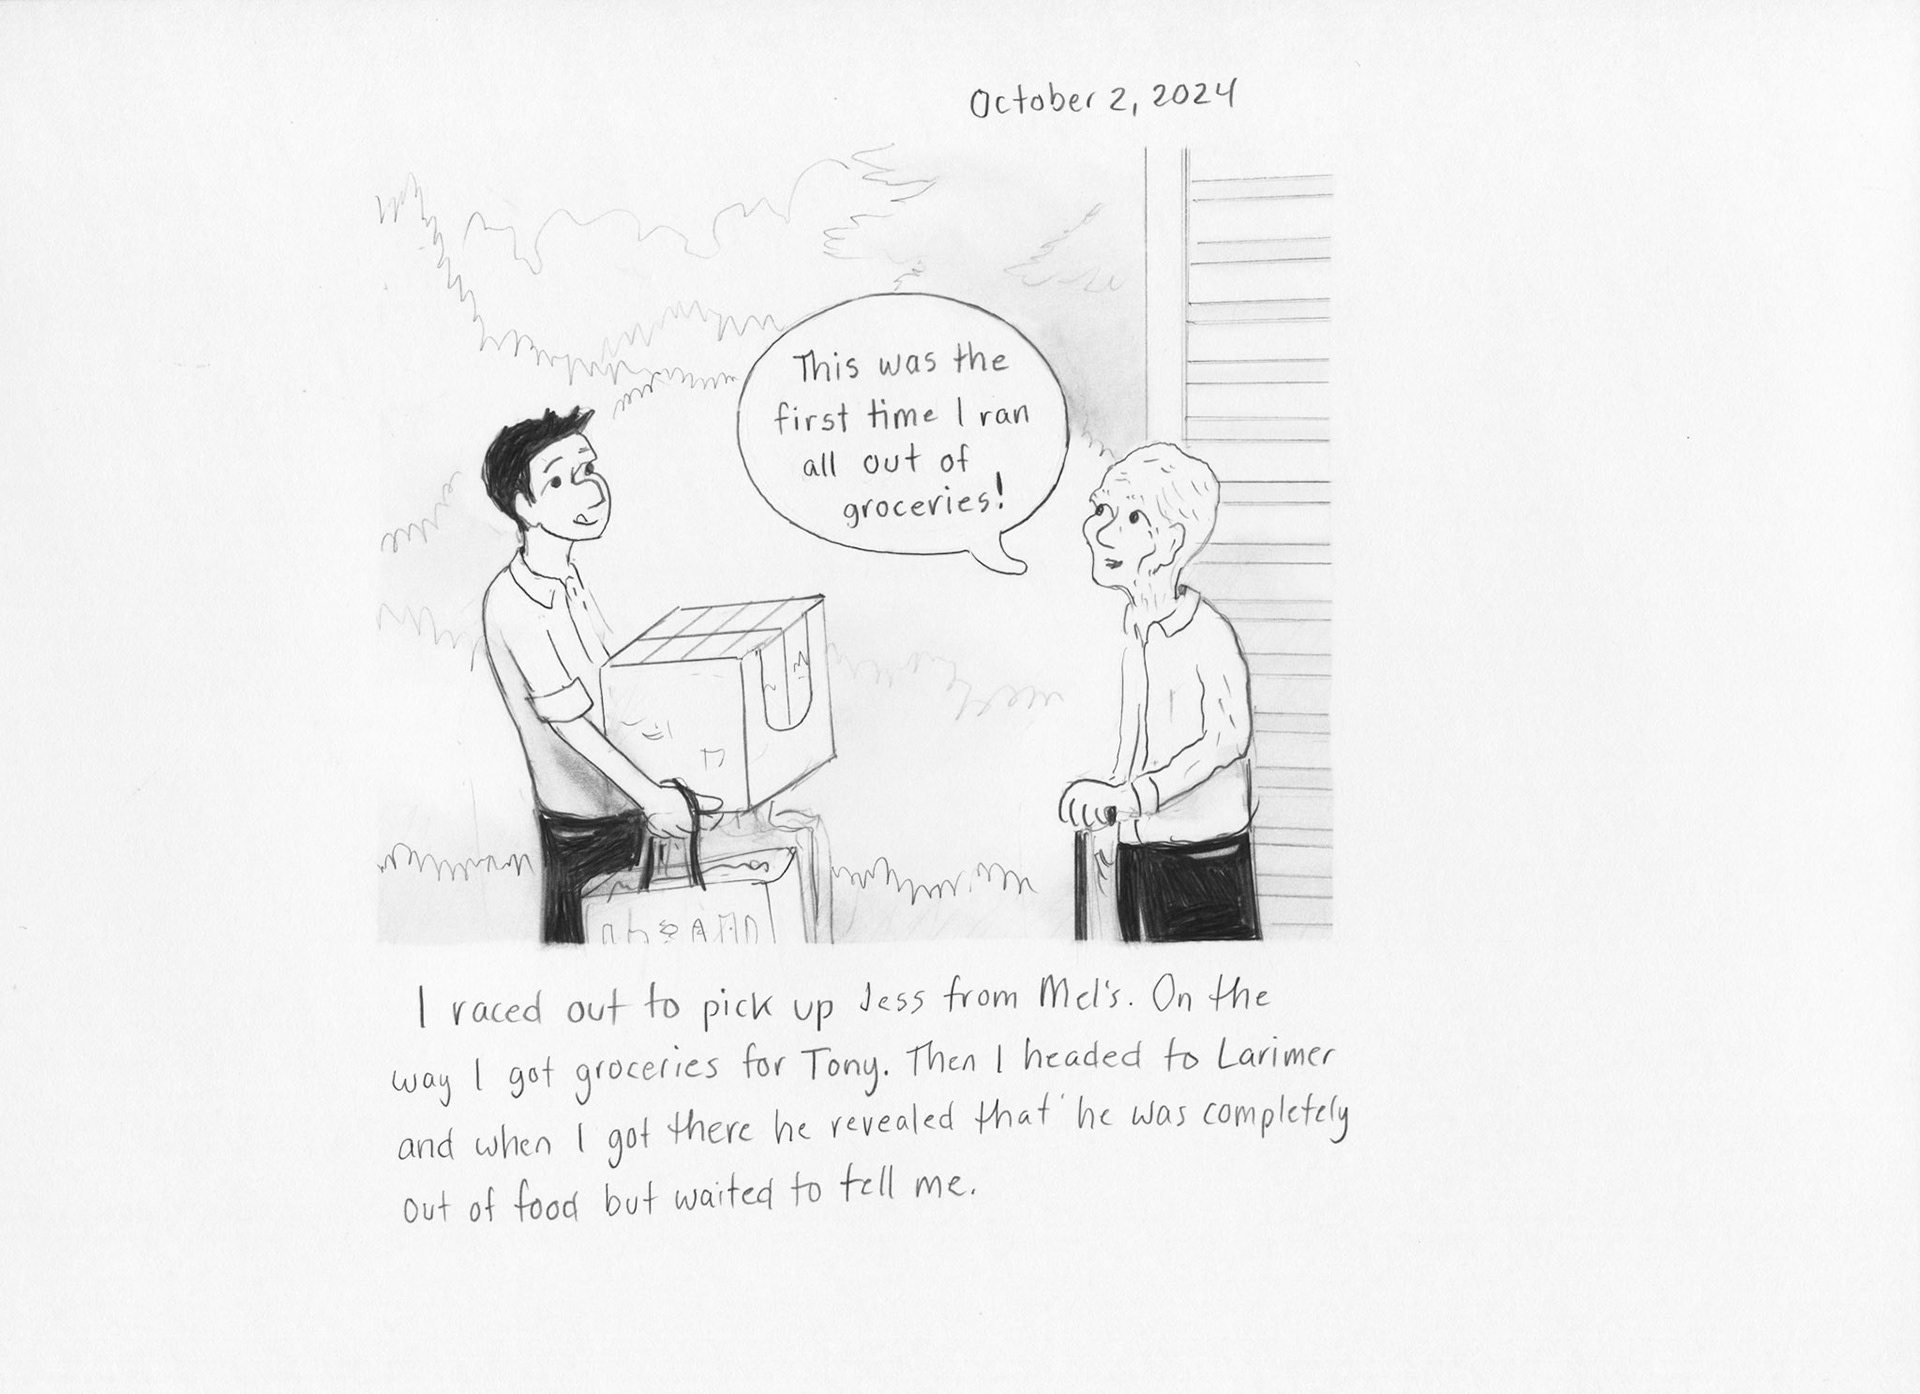 October 2, 2024
This was the
first time I ran
all out of
groceries!
I raced out to pick up Jess from Mel's. On the
way I got groceries for Tony. Then I headed to Larimer
and when I got there he revealed that he was completely
out of food but waited to tell me.